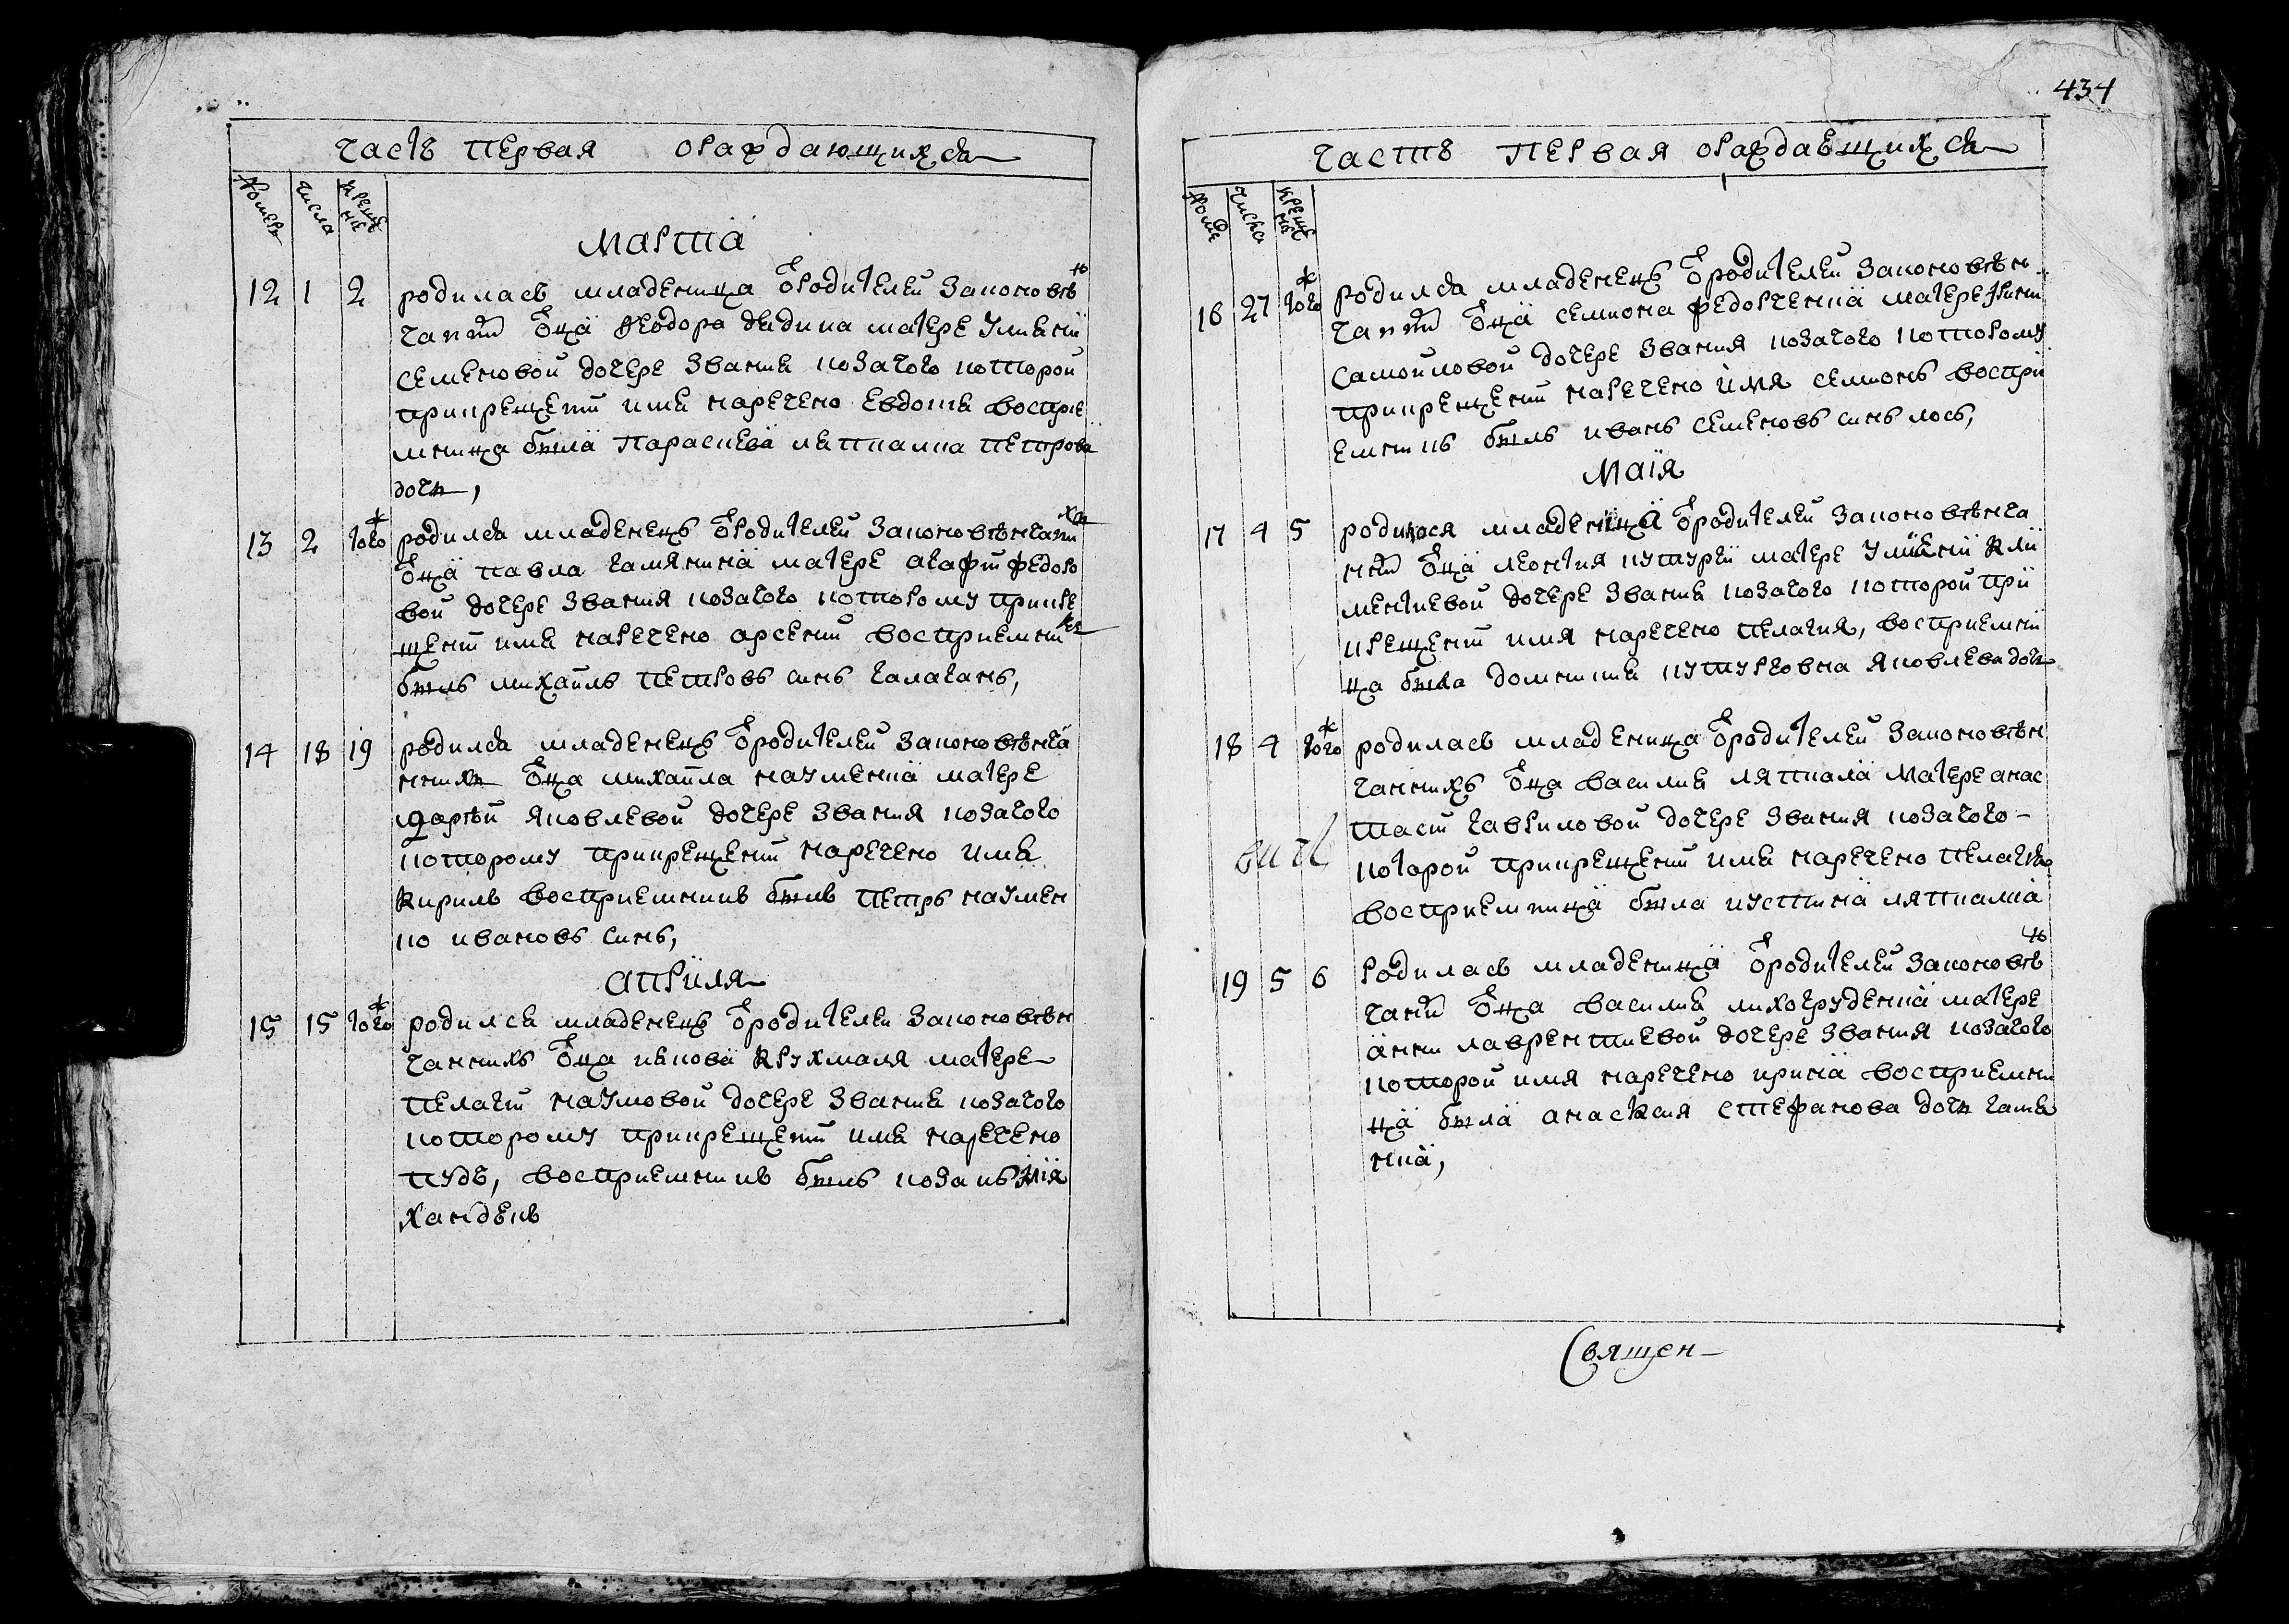 434
часть первая орождающихся
номеръ числа крещение
мартиа
12 1 2 родилась младеница ѿ родителей законовѣн
чаннй ѿца Феодора дядика матере улияній
семеновой дочере звания козачого которой
прикрещениї имя наречено евдокия восприе
мница была параскева ляшкалка петрова
дочь,
13 2 того ж родился младенецъ ѿ родителей законовѣнчаннйхъ
ѿца павла гамянина матере агафиї федоро
вой дочере звания козачого которому прикре
щениї имя наречено арсений восприемникъ
былъ михаилъ петровъ синъ галаганъ,
14 18 19 родился младенецъ ѿ родителей законовѣнча
ннихъ ѿца михаила науменка матере
дарѣй яковлевой дочере звания козачого
которому прикрещениї наречено имя
кирилъ восприемникъ былъ петръ наумен
ко ивановъ синъ,
априля
15 15 того ж родился младенецъ ѿ родителей законовѣн
чаннихъ ѿца иякова крухмаля матере
пелагиї наумовой дочере звания козачого
которому прикрещениї имя наречено
пудъ, восприемникъ былъ козакъ
хандекъ
часть первая орождаещихся
номе числа крещение
16 27 того ж родился младенецъ ѿ родителей законовѣн
чаннй ѿца семиона федорченка матере
самойловой дочере звания козачого которому
прикрещениї наречено имя семионъ воспри
емникъ былъ иванъ семеновъ синъ лось,
маїя
17 4 5 родилася младеница ѿ родителей законовѣнча
ннй ѿца леонтия кутургй матере улияній кли
ментиевой дочере звания козачого которой при
крещениї имя наречено пелагия, восприемни
ца была домникия кутурговна яковлева дочь
18 4 того ж родилась младеница ѿ родителей законовѣн
чаннихъ ѿца василия ляшкала матере анас
тасиї гавриловой дочере звания козачого
которой прикрещениї имя наречено пелагия
восприемница была иустина ляшкалка
19 5 6 родилась младеница ѿ родителей законовѣн
чаннй ѿца василия лихогруденка матере
анни лаврентиевой дочере звания козачого
которой имя наречено ирина восприемни
ца была анаскасия стефанова дочь гамя
нка,
Священ